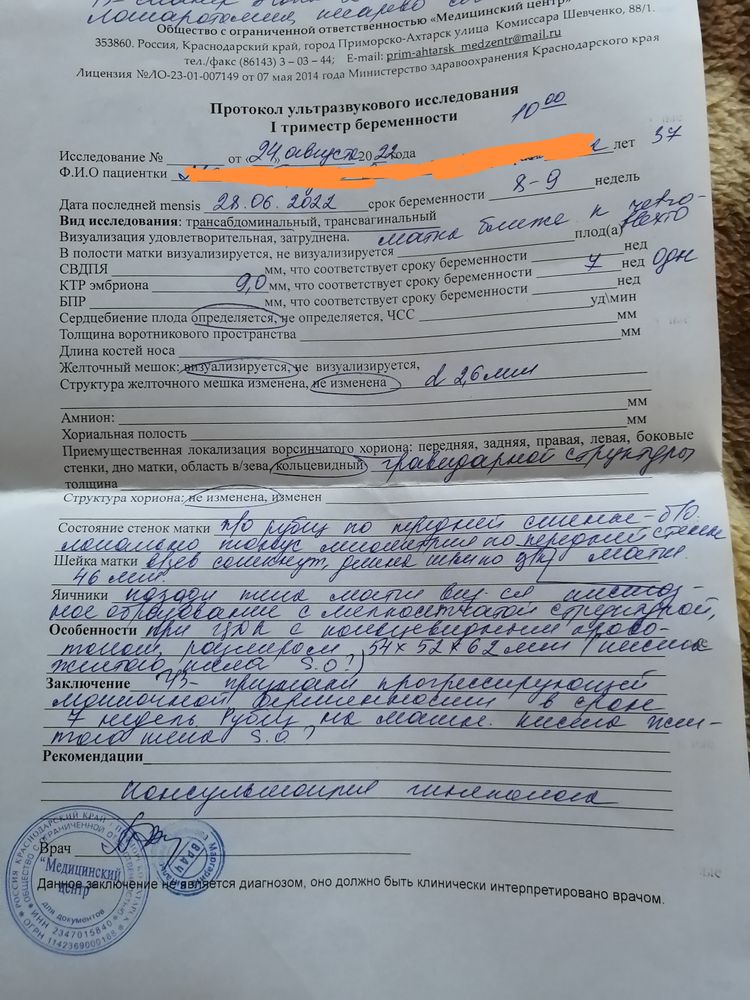 лапаротомия, кесарево
Общество с ограниченной ответственностью «Медицинский центр»
353860. Россия, Краснодарский край, город Приморско-Ахтарск улица Комиссара Шевченко, 88/1.
тел./факс (86143) 3 – 03 – 44; E-mail: prim-ahtarsk_medzentr@mail.ru
Лицензия №ЛО-23-01-007149 от 07 мая 2014 года Министерство здравоохранения Краснодарского края
Протокол ультразвукового исследования
I триместр беременности 10 00
Исследование № от «24» августа 2022 года
Ф.И.О пациентки лет 37
Дата последней mensis 28.06.2022 срок беременности 8-9 недель
Вид исследования: трансабдоминальный, трансвагинальный
Визуализация удовлетворительная, затруднена. матка ближе к retro-
flexio
В полости матки визуализируется, не визуализируется плод(а)
СВДПЯ мм, что соответствует сроку беременности нед
КТР эмбриона 9,0 мм, что соответствует сроку беременности 7 нед 0дн
БПР мм, что соответствует сроку беременности нед
Сердцебиение плода определяется, не определяется, ЧСС уд\мин
Толщина воротникового пространства мм
Длина костей носа мм
Желточный мешок: визуализируется, не визуализируется,
Структура желточного мешка изменена, не изменена d 2,6 мм
Амнион: мм
Хориальная полость мм
Приемущественная локализация ворсинчатого хориона: передняя, задняя, правая, левая, боковые
стенки, дно матки, область в/зева, кольцевидный гравидарной структуры
толщина
Структура хориона: не изменена, изменен
Состояние стенок матки п/о рубец по передней стенке - б/о.
локально тонус миометрия по передней стенке
Шейка матки в/зев сомкнут, длина шейки матки
46 мм
Яичники позади тела матки виз-ся кистоз-
ное образование с мелкосетчатой структурой,
Особенности при ЦДК с кольцевидным крово-
током, размером 54х52х62 мм (киста
желтого тела S.O?)
Заключение УЗ- признаки прогрессирующей
маточной беременности в сроке
7 недель. Рубец на матке. киста жел-
того тела S.O.?
Рекомендации
Консультация гинеколога
Врач
РОССИЯ КРАСНОДАРСКИЙ КРАЙ
"Медицинский центр"
для документов
ИНН 2347015840
ОГРН 1142369000168
ВРАЧ
Данное заключение не является диагнозом, оно должно быть клинически интерпретировано врачом.